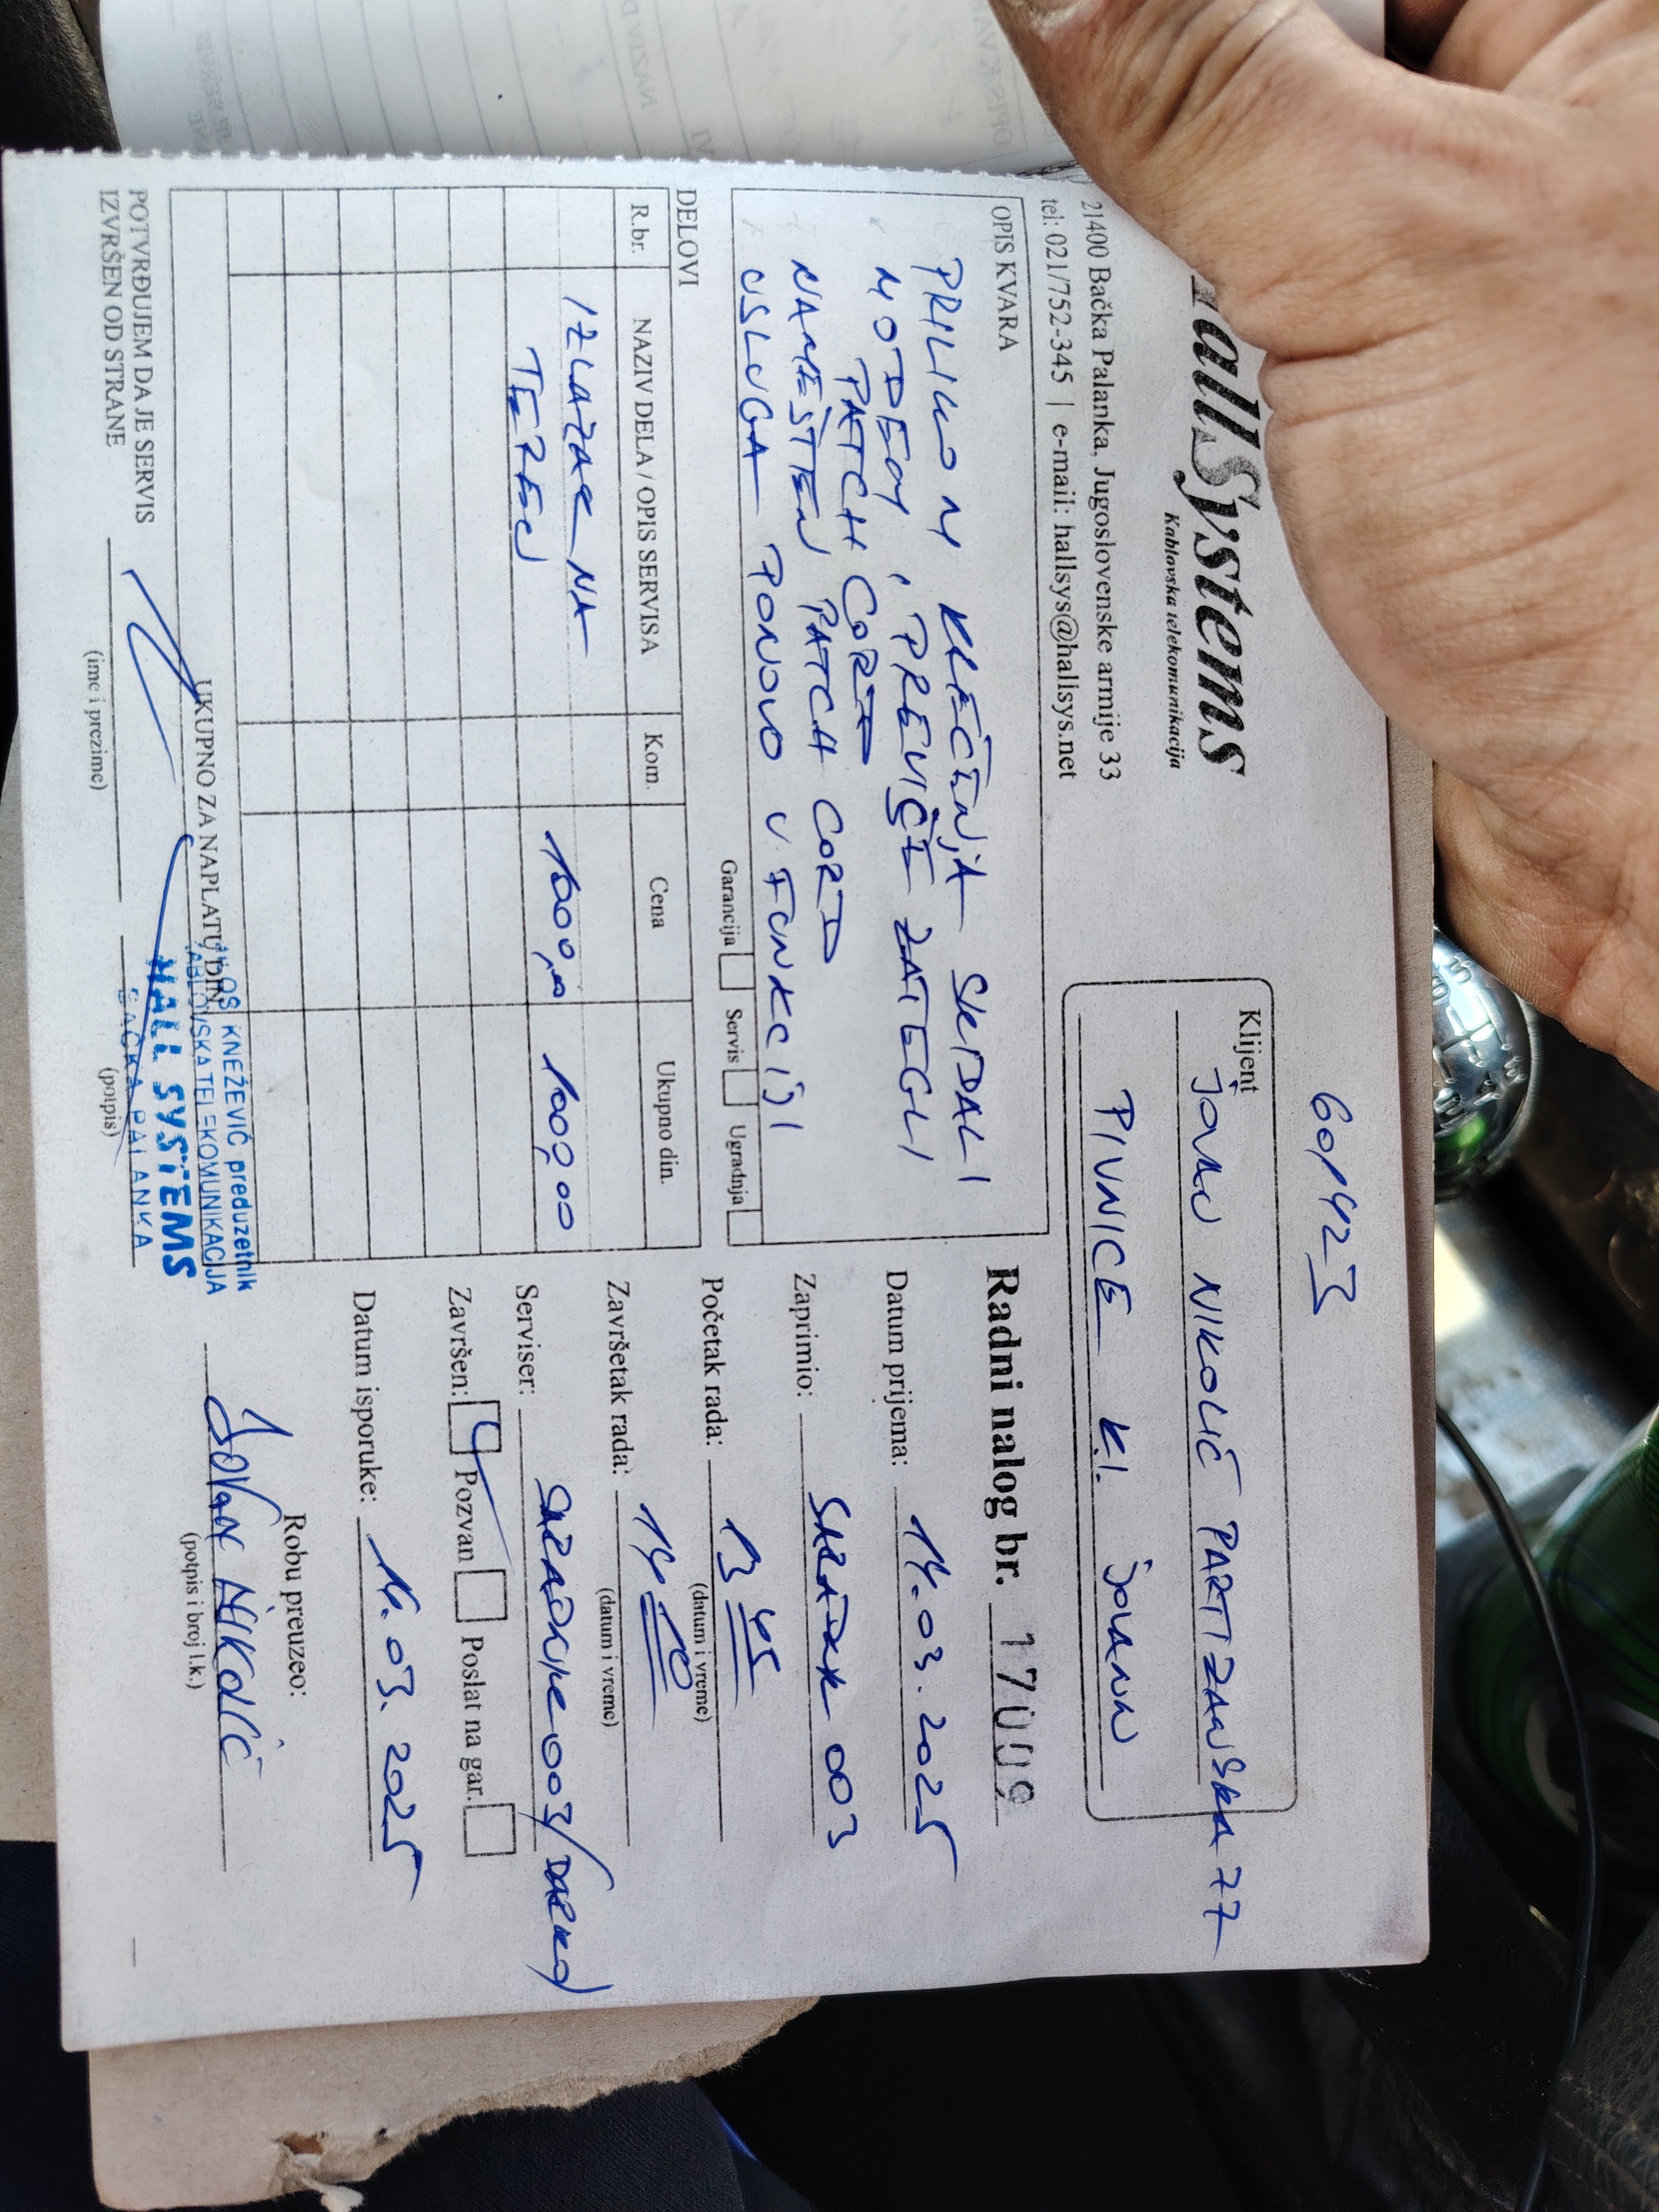 601423
HallSystems
Kablovska telekomunikacija
21400 Bačka Palanka, Jugoslovenske armije 33
tel: 021/752-345 | e-mail: hallsys@hallsys.net
Klijent
JOVAN NIKOLIĆ PARTIZANSKA 77
PIVNICE KI. JOVANN
OPIS KVARA
PRILIKOM KREČENJA SKIDALI
MODEM, PREVIŠE ZATEGLI
PATCH CORD
NAMEŠTEN PATCH CORD
USLUGA PONOVO U FUNKCIJI
Garancija Servis Ugradnja
DELOVI
R.br. NAZIV DELA / OPIS SERVISA Kom. Cena Ukupno din.
IZLAZAK NA
TEREN 1000,00 1000,00
UKUPNO ZA NAPLATU DIN.
POTVRĐUJEM DA JE SERVIS
IZVRŠEN OD STRANE
(ime i prezime) (potpis)
KNEŽEVIĆ preduzetnik
KABLOVSKA TELEKOMUNIKACIJA
HALL SYSTEMS
BAČKA PALANKA
Radni nalog br. 17009
Datum prijema: 14.03.2025
Zaprimio: 003
Početak rada: 13 45
(datum i vreme)
Završetak rada: 14 10
(datum i vreme)
Serviser: 003/DARKO
Završen: Pozvan Poslat na gar.
Datum isporuke: 14.03.2025
Robu preuzeo:
JOVAN NIKOLIĆ
(potpis i broj l.k.)